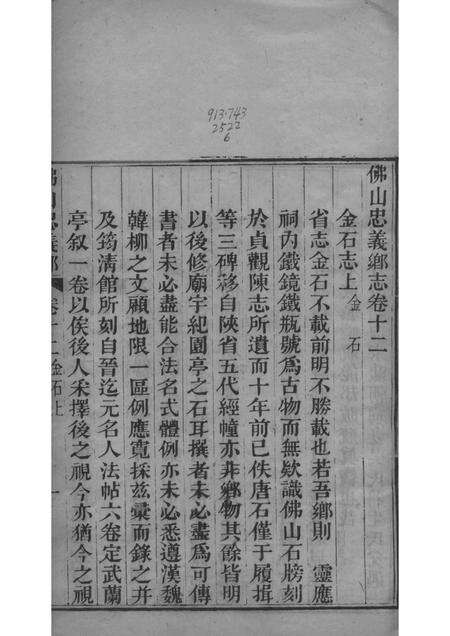 913.743
2522
6
佛山忠義鄉志卷十二
金石志上 金石
省志金石不載前明不勝載也若吾鄉則 靈應
祠內鐵鏡鐵瓶號為古物而無欵識佛山石牓刻
於貞觀陳志所遺而十年前已佚唐石僅于履揖
等三碑移自陝省五代經幢亦非鄉物其餘皆明
以後修廟宇紀園亭之石耳撰者未必盡為可傳
書者未必盡能合法名式體例亦未必悉遵漢魏
韓柳之文顧地限一區例應寬採茲彙而錄之并
及筠清館所刻自晉迄元名人法帖六卷定武蘭
亭叙一卷以俟後人采擇後之視今亦猶今之視
佛山忠義鄉 卷十二金石上 一